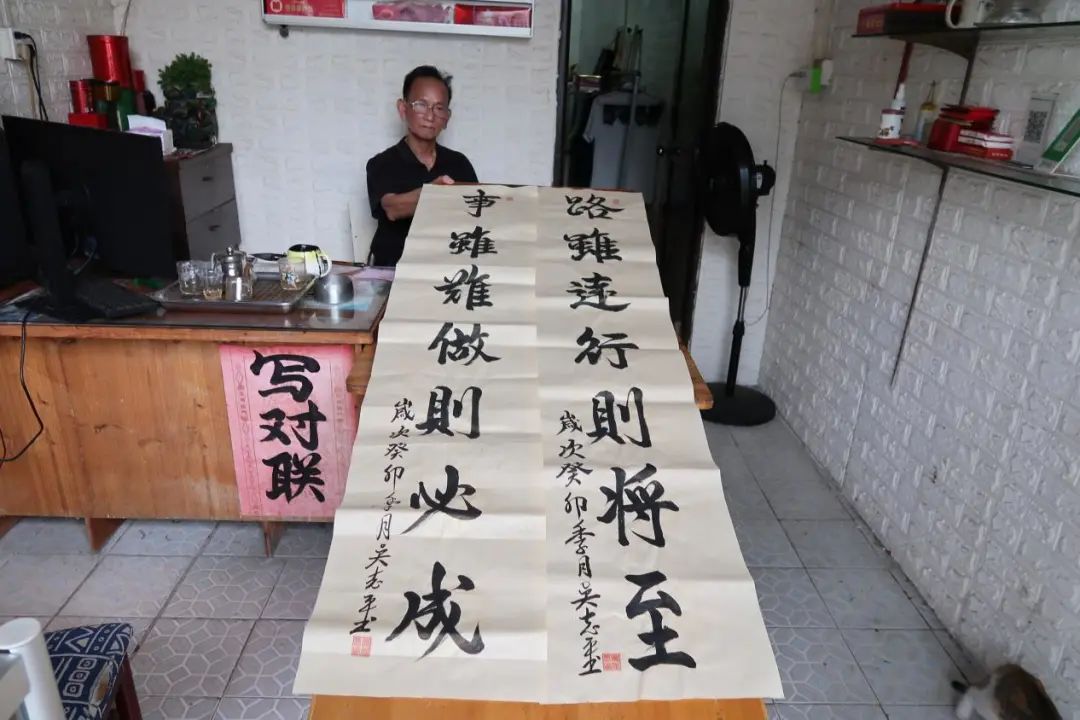 路雖遠行則將至
歲次癸卯季月吴志平书
事雖難做則必成
歲次癸卯季月吴志平书
写对联